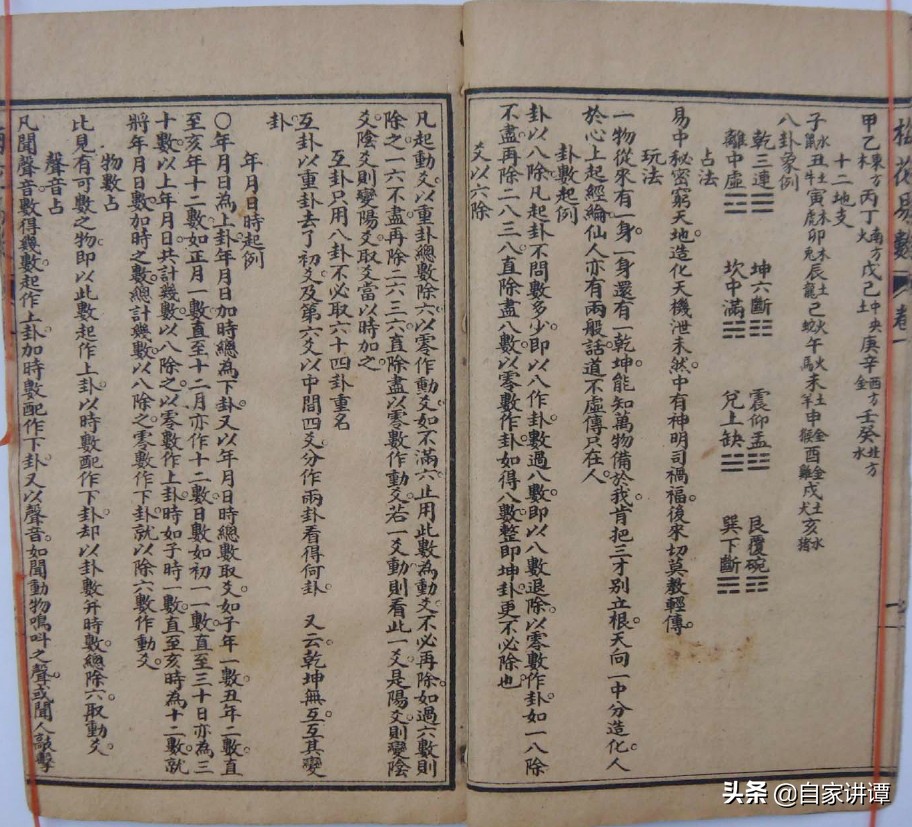 梅花易數 卷一
甲乙東方木 丙丁南方火 戊己中央土 庚辛西方金 壬癸北方水
十二地支
子水鼠 丑土牛 寅木虎 卯木兔 辰土龍 巳火蛇 午火馬 未土羊 申金猴 酉金雞 戌土犬 亥水猪
八卦象例
乾三連☰ 坤六斷☷ 震仰盂☳ 艮覆碗☶
離中虛☲ 坎中滿☵ 兌上缺☱ 巽下斷☴
占法
易中秘密窮天地造化天機泄未然中有神明司禍福後來切莫教輕傳
玩法
一物從來有一身一身還有一乾坤能知萬物備於我肯把三才別立根天向一中分造化人
於心上起經綸仙人亦有兩般話道不虛傳只在人
卦數起例
卦以八除凡起卦不問數多少即以八作卦數過八數即以八數退除以零數作卦如一八除
不盡再除二八三八直除盡八數以零數作卦如得八數整即坤卦更不必除也
爻以六除
凡起動爻以重卦總數除六以零作動爻如不滿六止用此數為動爻不必再除如過六數則
除之一六不盡再除二六三六直除盡以零數作動爻若一爻動則看此一爻是陽爻則變陰
爻陰爻則變陽爻取爻當以時加之
互卦只用八卦不必取六十四卦重名
互卦以重卦去了初爻及第六爻以中間四爻分作兩卦看得何卦 又云乾坤無互互其變
卦
年月日時起例
○年月日為上卦年月日加時總為下卦又以年月日時總數取爻如子年一數丑年二數直
至亥年十二數如正月一數直至十二月亦作十二數日數如初一一數直至三十日亦為三
十數以上年月日共計幾數以八除之以零數作上卦時如子時一數直至亥時為十二數就
將年月日數加時之數總計幾數以八除之零數作下卦就以除六數作動爻
物數占
比見有可數之物即以此數起作上卦以時數配作下卦却以卦數并時數總除六取動爻
聲音占
凡聞聲音數得幾數起作上卦加時數配作下卦又以聲音如聞動物鳴叫之聲或聞人敲擊
头条 @自家讲谭